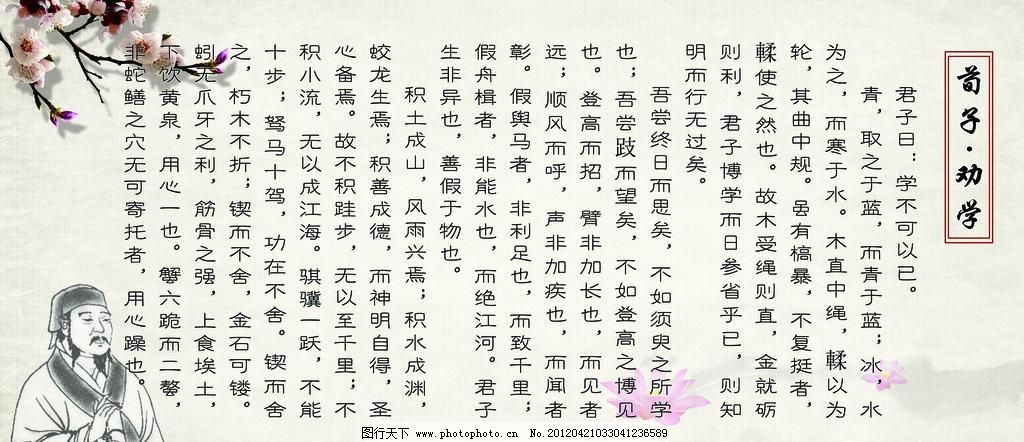 荀子·劝学
君子曰：学不可以已。
青，取之于蓝，而青于蓝；冰，水
为之，而寒于水。木直中绳，輮以为
轮，其曲中规。虽有槁暴，不复挺者，
輮使之然也。故木受绳则直，金就砺
则利，君子博学而日参省乎已，则知
明而行无过矣。
吾尝终日而思矣，不如须臾之所学
也；吾尝跂而望矣，不如登高之博见
也。登高而招，臂非加长也，而见者
远；顺风而呼，声非加疾也，而闻者
彰。假舆马者，非利足也，而致千里；
假舟楫者，非能水也，而绝江河。君子
生非异也，善假于物也。
积土成山，风雨兴焉；积水成渊，
蛟龙生焉；积善成德，而神明自得，圣
心备焉。故不积跬步，无以至千里；不
积小流，无以成江海。骐骥一跃，不能
十步；驽马十驾，功在不舍。锲而舍
之，朽木不折；锲而不舍，金石可镂。
蚓无爪牙之利，筋骨之强，上食埃土，
下饮黄泉，用心一也。蟹六跪而二螯，
非蛇鳝之穴无可寄托者，用心躁也。
图行天下 www.photophoto.cn No.20120421033041236589